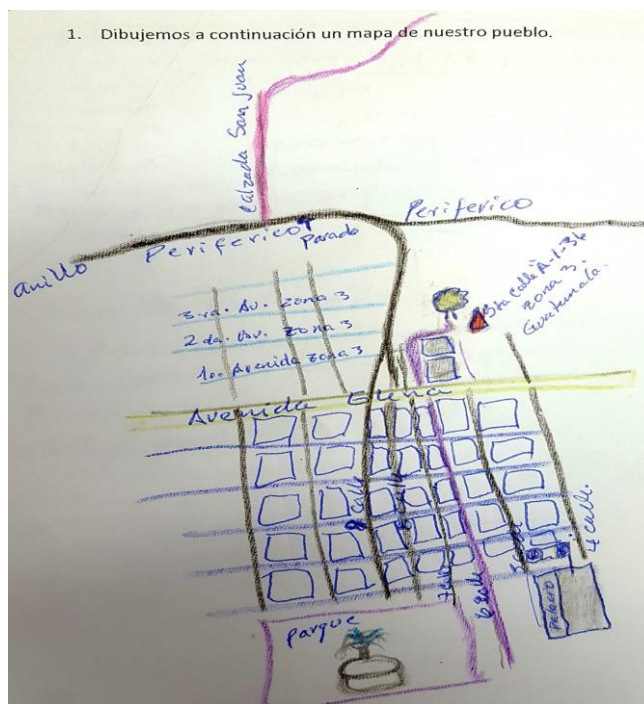 1. Dibujemos a continuación un mapa de nuestro pueblo.
Calzada San Juan
Periferico
anillo
Periferico
Parada
3ra. Av. zona 3
2da. Av. zona 3
1ra. Avenida zona 3
calle A-1-36
zona 3.
Guatemala.
Avenida Elena
8 calle
7 calle
6 calle
4 calle.
Palacio
Parque